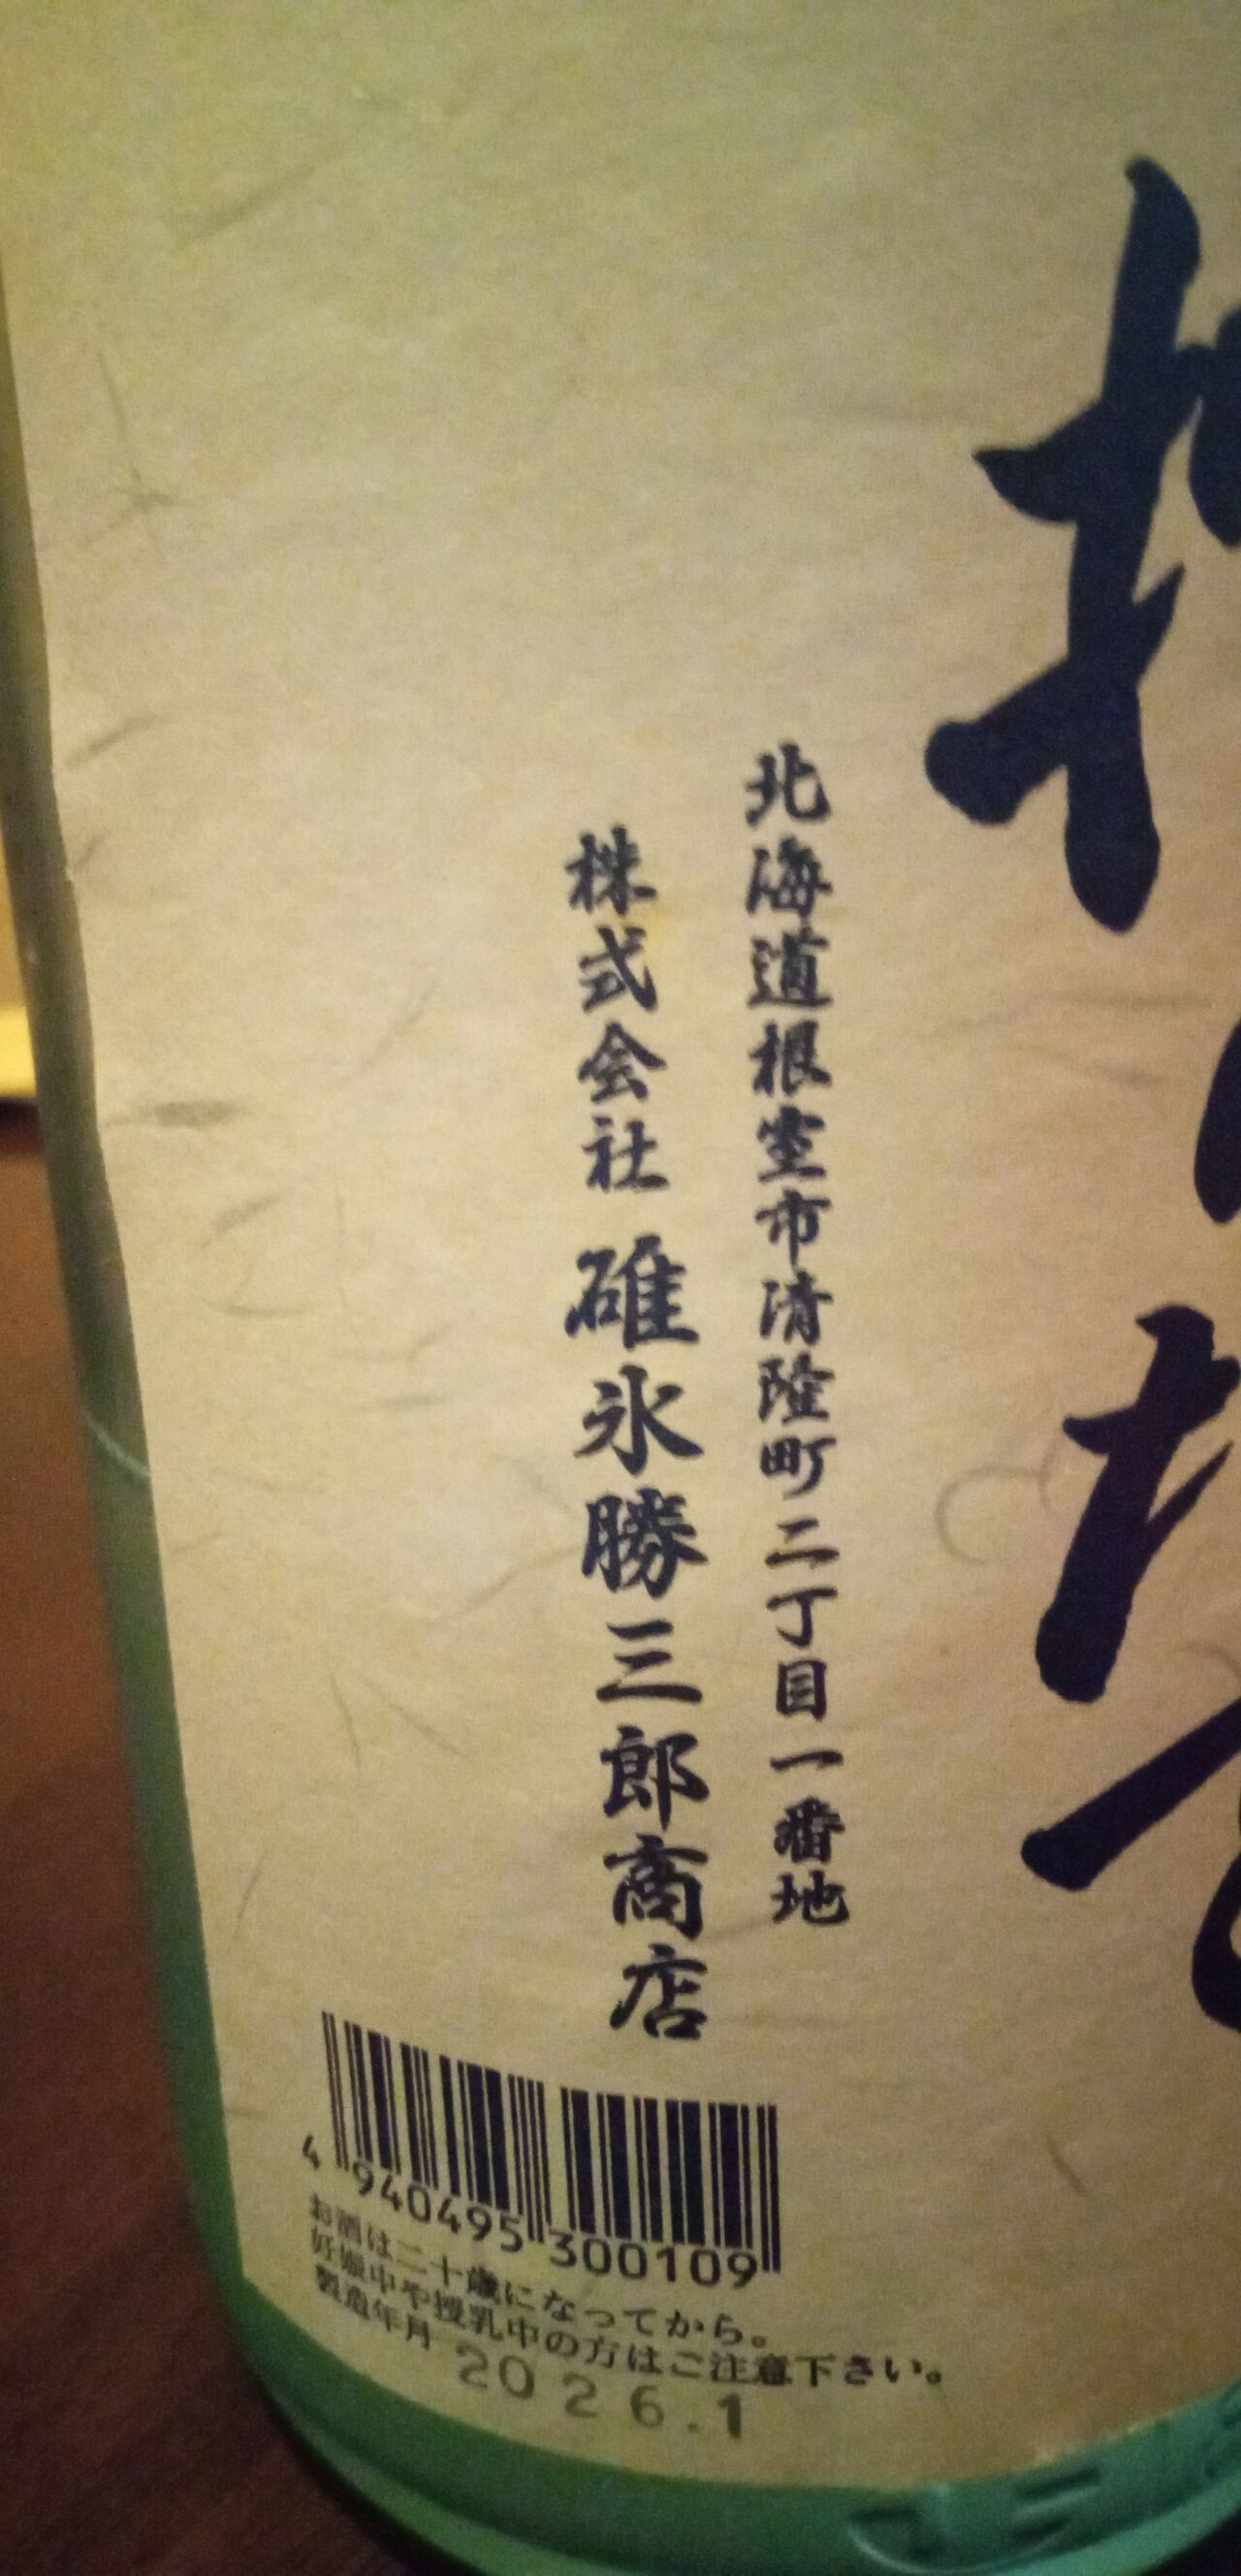 北海道根室市清隆町二丁目一番地
株式会社 碓氷勝三郎商店
4 940495 300109
お酒は二十歳になってから。
妊娠中や授乳中の方はご注意下さい。
製造年月 2026.1